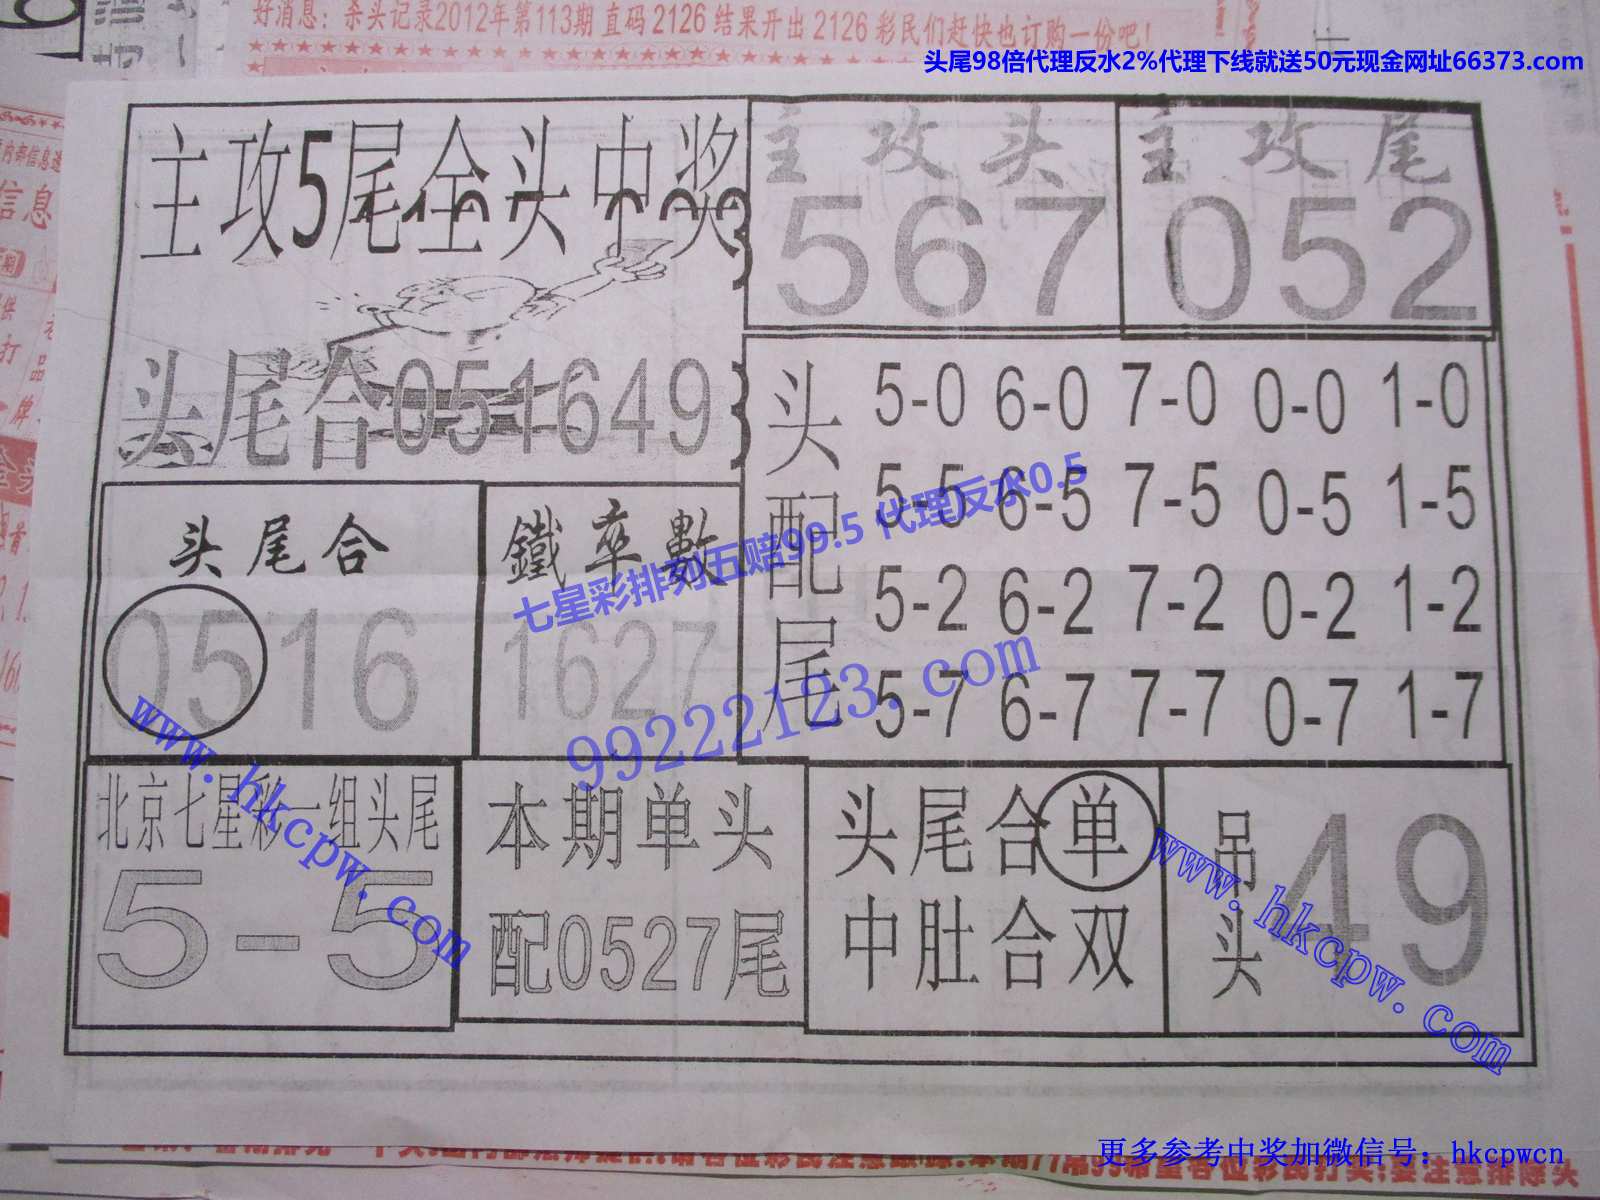 好消息：杀头记录2012年第113期 直码 2126 结果开出 2126 彩民们赶快也订购一份吧！
头尾98倍代理反水2%代理下线就送50元现金网址66373.com
主攻5尾全头中奖
主攻头
567
主攻尾
052
头尾合051649
头配尾
5-0 6-0 7-0 0-0 1-0
5-5 6-5 7-5 0-5 1-5
5-2 6-2 7-2 0-2 1-2
5-7 6-7 7-7 0-7 1-7
头尾合
0516
鐵卒數
1627
七星彩排列五赔99.5 代理反水0.5
99222123.com
www.hkcpw.com
北京七星彩一组头尾
5-5
本期单头
配0527尾
头尾合单
中肚合双
吊头
49
www.hkcpw.com
更多参考中奖加微信号：hkcpwcn
信息